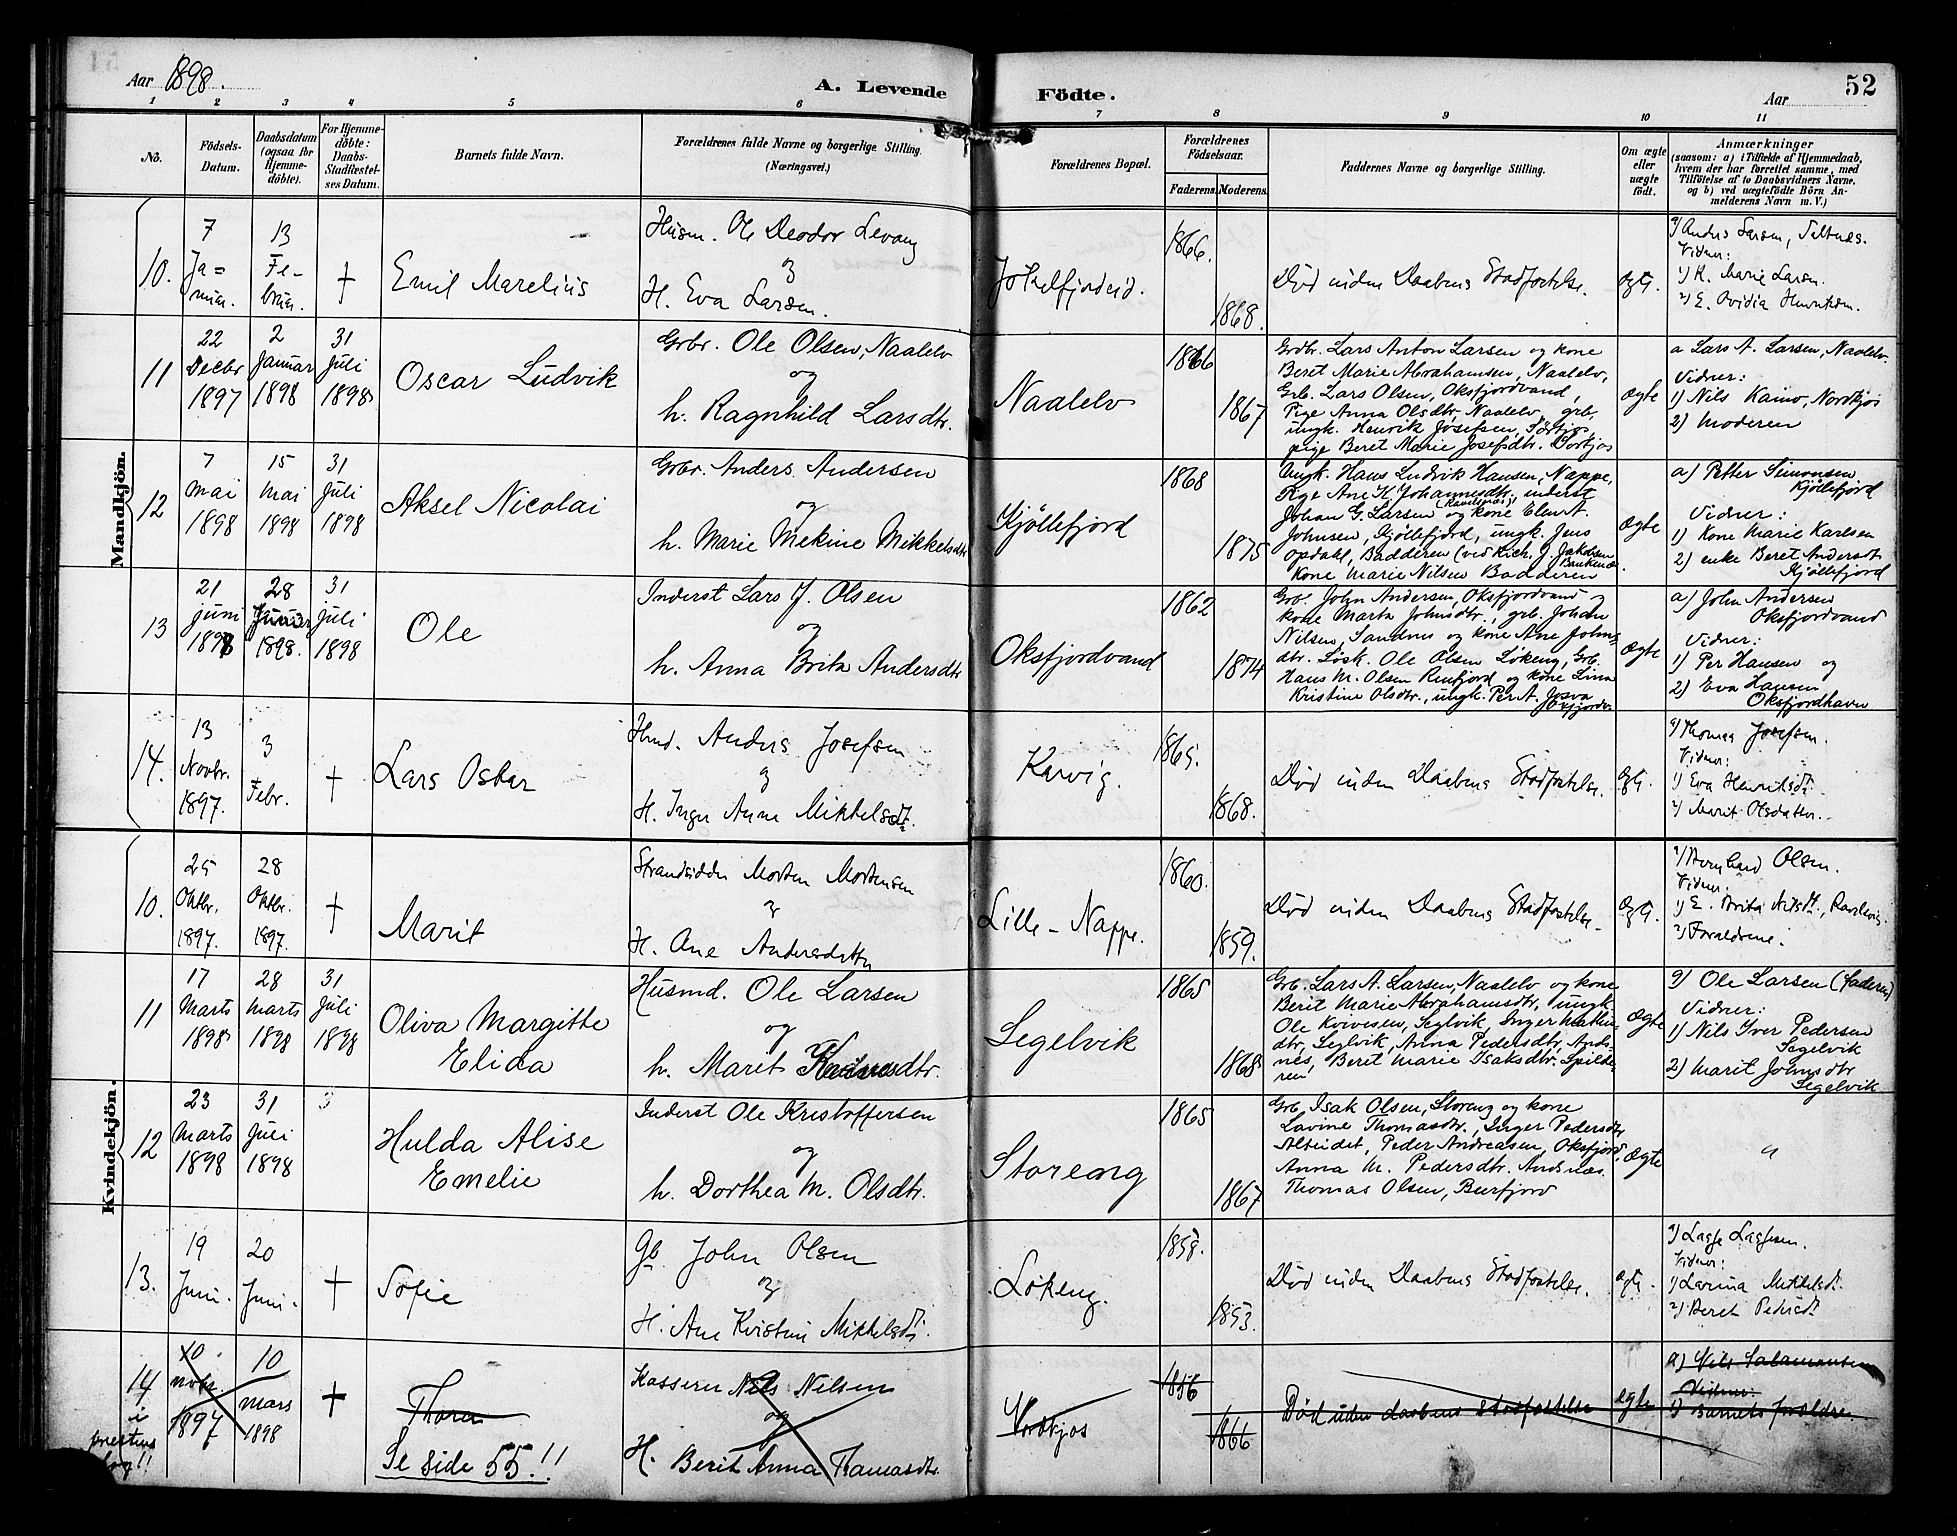 Aar 1898.
A. Levende Födte.
52
Aar
1 2 3 4 5 6 7 8 9 10 11
No.
Födsels-
Datum.
Daabsdatum
(ogsaa for
Hjemme-
döbte).
For Hjemme-
döbte:
Daabs-
Stadfæstel-
ses Datum.
Barnets fulde Navn.
Forældrenes fulde Navne og borgerlige Stilling.
(Næringsvei.)
Forældrenes Bopæl.
Forældrenes
Födselsaar.
Faderens. Moderens.
Faddernes Navne og borgerlige Stilling.
Om ægte
eller
uægte
födt.
Anmærkninger
(saasom: a) i Tilfælde af Hjemmedaab,
hvem der har forrettet samme, med
Tilföielse af to Daabsvidners Navne,
og b) ved uegtefödte Börn An-
melderens Navn m. V.)
Mandkjön.
10.
7
Ja=
nuar.
13
Fe-
bruar.
+
Emil Marelius
Husm. Ole Deodor Levang
og
H. Eva Larsen.
Jøkelfjordeid.
1866.
1868.
Död inden Daabens Stadfæstelse.
ægte.
a) Anders Larsen, Saltnes.
Vidner:
1) K. Marie Larsen.
2) E. Ovidia Henriksen.
11
22
Decbr
1897
2
Januar
1898
31
Juli
1898
Oscar Ludvik
Grbr. Ole Olsen, Naalelv
og
h. Ragnhild Larsdtr.
Naalelv
1866
1867
Grdbr. Lars Anton Larsen og kone
Beret Marie Abrahamsen, Naalelv,
Grb. Lars Olsen, Oksfjordvand,
Pige Anna Olsdtr. Naalelv, grb.
ungk. Henrik Josefsen, Sörkjos,
pige Beret Marie Josefsdtr. Sorkjos
ægte
a Lars A. Larsen, Naalelv.
Vidner:
1) Nils Kaino, Nordkjos
2) Moderen
12
7
Mai
1898
15
Mai
1898
31
Juli
1898
Aksel Nicolai
Grbr. Anders Andersen
og
h. Marie Mekine Mikkelsdtr
Kjöllefjord
1868
1875
Ungk. Hans Ludvik Hansen, Nappe,
Pige Ane K. Johannesdtr., inderst
Johan G. Larsen og kone Elen A.
Johnsen, Kjøllefjord, ungk. Jens
Opdahl, Badderen (ved Rich. J. Jakobsen
Kone Marie Nilsen Badderen
ægte
a) Petter Simonsen
Kjöllefjord
Vidner:
1) Kone Marie Karlsen
2) enke Beret Andersdt
Kjöllefjord
13
21
juni
1898
28
Juni
1898.
31
juli
1898
Ole
Inderst Lars J. Olsen
og
h. Anna Brita Andersdtr
Oksfjordvand
1862
1874
Grb. John Andersen, Oksfjordvand
kone Marta Johnsdtr., grb. Johan
Nilsen, Sandnes og kone Ane Johns=
dtr. Løsk. Ole Olsen Løkeng, Grb.
Hans M. Olsen Reinfjord og kone Lina
Kristine Olsdtr., ungk. Per A. Josva
Oxfjordv.
ægte
a) John Andersen
Oksfjordvand
Vidner:
1) Per Hansen og
2) Eva Hansen
Oksfjordhavn
14.
13
Novbr.
1897.
3
Febr.
+
Lars Oskar
Hmd. Anders Josefsen
og
H. Inger Anne Mikkelsdt.
Karvig.
1865.
1868.
Död inden Daabens Stadfæstelse.
ægte.
a) Thomas Josefsen.
Vidner:
1) Eva Henriksdt.
2) Marit Olsdatter.
Kvindekjön.
10.
25
Oktbr.
1897.
28
Oktbr.
1897.
+
Marit
Strandsidder Morten Mortensen
og
H. Ane Andersdatter
Lille-Nappe.
1860.
1859.
Död inden Daabens Stadfæstelse.
ægte.
a) Bernhard Olsen.
Vidner.
1) E. Brita Nilsdt., Ravelsnæs.
2) Forældrene.
11
17
Marts
1898
28
Marts
1898
31
Juli
1898
Oliva Margitte
Elida
Husmd. Ole Larsen
og
h. Marit
Segelvik
1865
1868
Grb. Lars A. Larsen, Naalelv og kone
Berit Marie Abrahamsdtr, ungk
Ole Kvivesen, Seglvik, Inger Mathis-
dtr, Seglvik, Anna Pedersdtr. Ands-
nes, Beret Marie Isaksdtr. Spilde-
ren
ægte
a) Ole Larsen (faderen)
Vidner:
1) Nils Iver Pedersen
Segelvik
2) Marit Johnsdtr
Segelvik
12
23
Marts
1898
31
Juli
1898
3
Hulda Alise
Emelie
Inderst Ole Kristoffersen
og
h. Dorthea M. Olsdtr.
Storeng
1865
1867
Grb. Isak Olsen, Storeng og kone
Lavine Thomasdtr., Inger Pedersdtr
Alteidet, Peder Andreasen, Oksfjord,
Anna M. Pedersdtr. Andsnæs.
Thomas Olsen, Burfjord
ægte
"
13.
19
Juni.
20
Juni.
+
Sofie
Gb. John Olsen
og
H. Ane Kristine Mikkelsdt.
Løkeng.
1858.
1853.
Död inden Daabens Stadfæstelse.
ægte.
a) Lasse Lassesen.
Vidner:
1) Larina Mikkelsdt.
2) Beret Pedersdt
14
i
prestens
bog!!
10
novbr.
1897
10
mars
1898
+
Thorin
Se side 55!!
Kasserer Nils Nilsen
og
H. Berit Anna Tamasdtr.
Nordkjos
1856
1866
Död uden daabens stadfæstelse
egte
a) Nils Salamonsen
Vidner.
1) Barnets forældre.